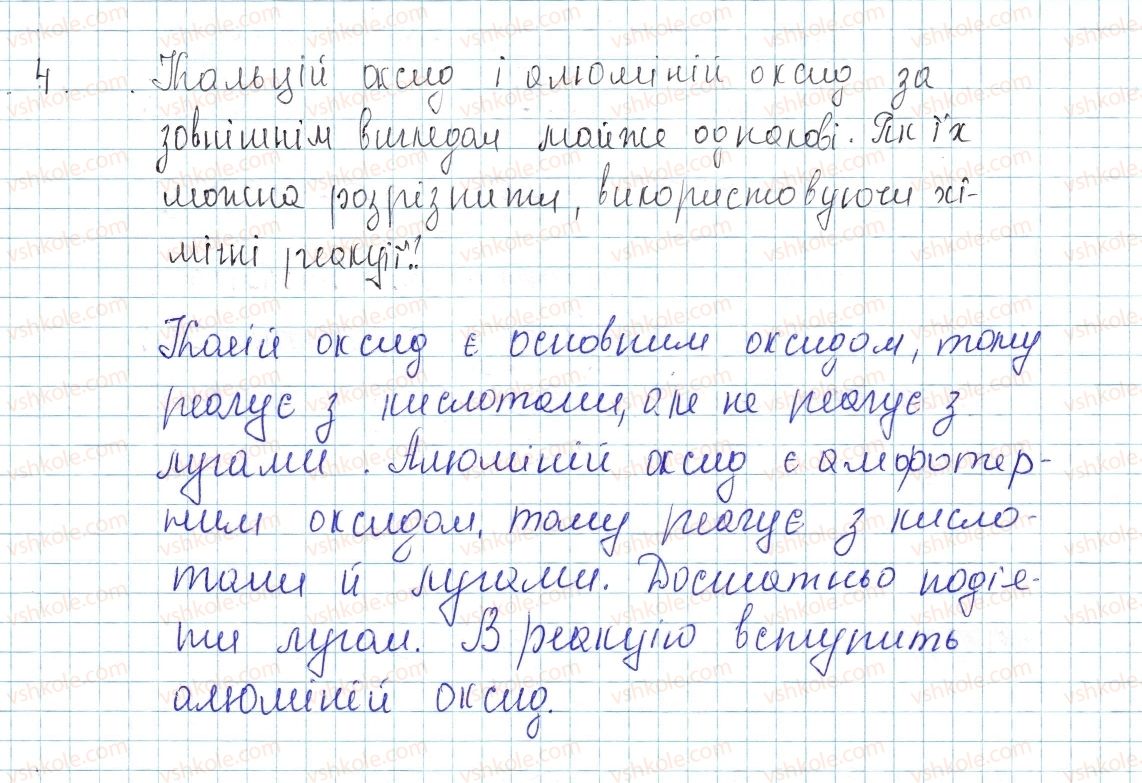 4. Кальцій оксид і алюміній оксид за
зовнішнім виглядом майже однакові. Як їх
можна розрізнити, використовуючи хі-
мічні реакції?
Калій оксид є основним оксидом, тому
реагує з кислотами, але не реагує з
лугами. Алюміній оксид є амфотер-
ним оксидом, тому реагує з кисло-
тами й лугами. Достатньо подія-
ти лугом. В реакцію вступить
алюміній оксид.